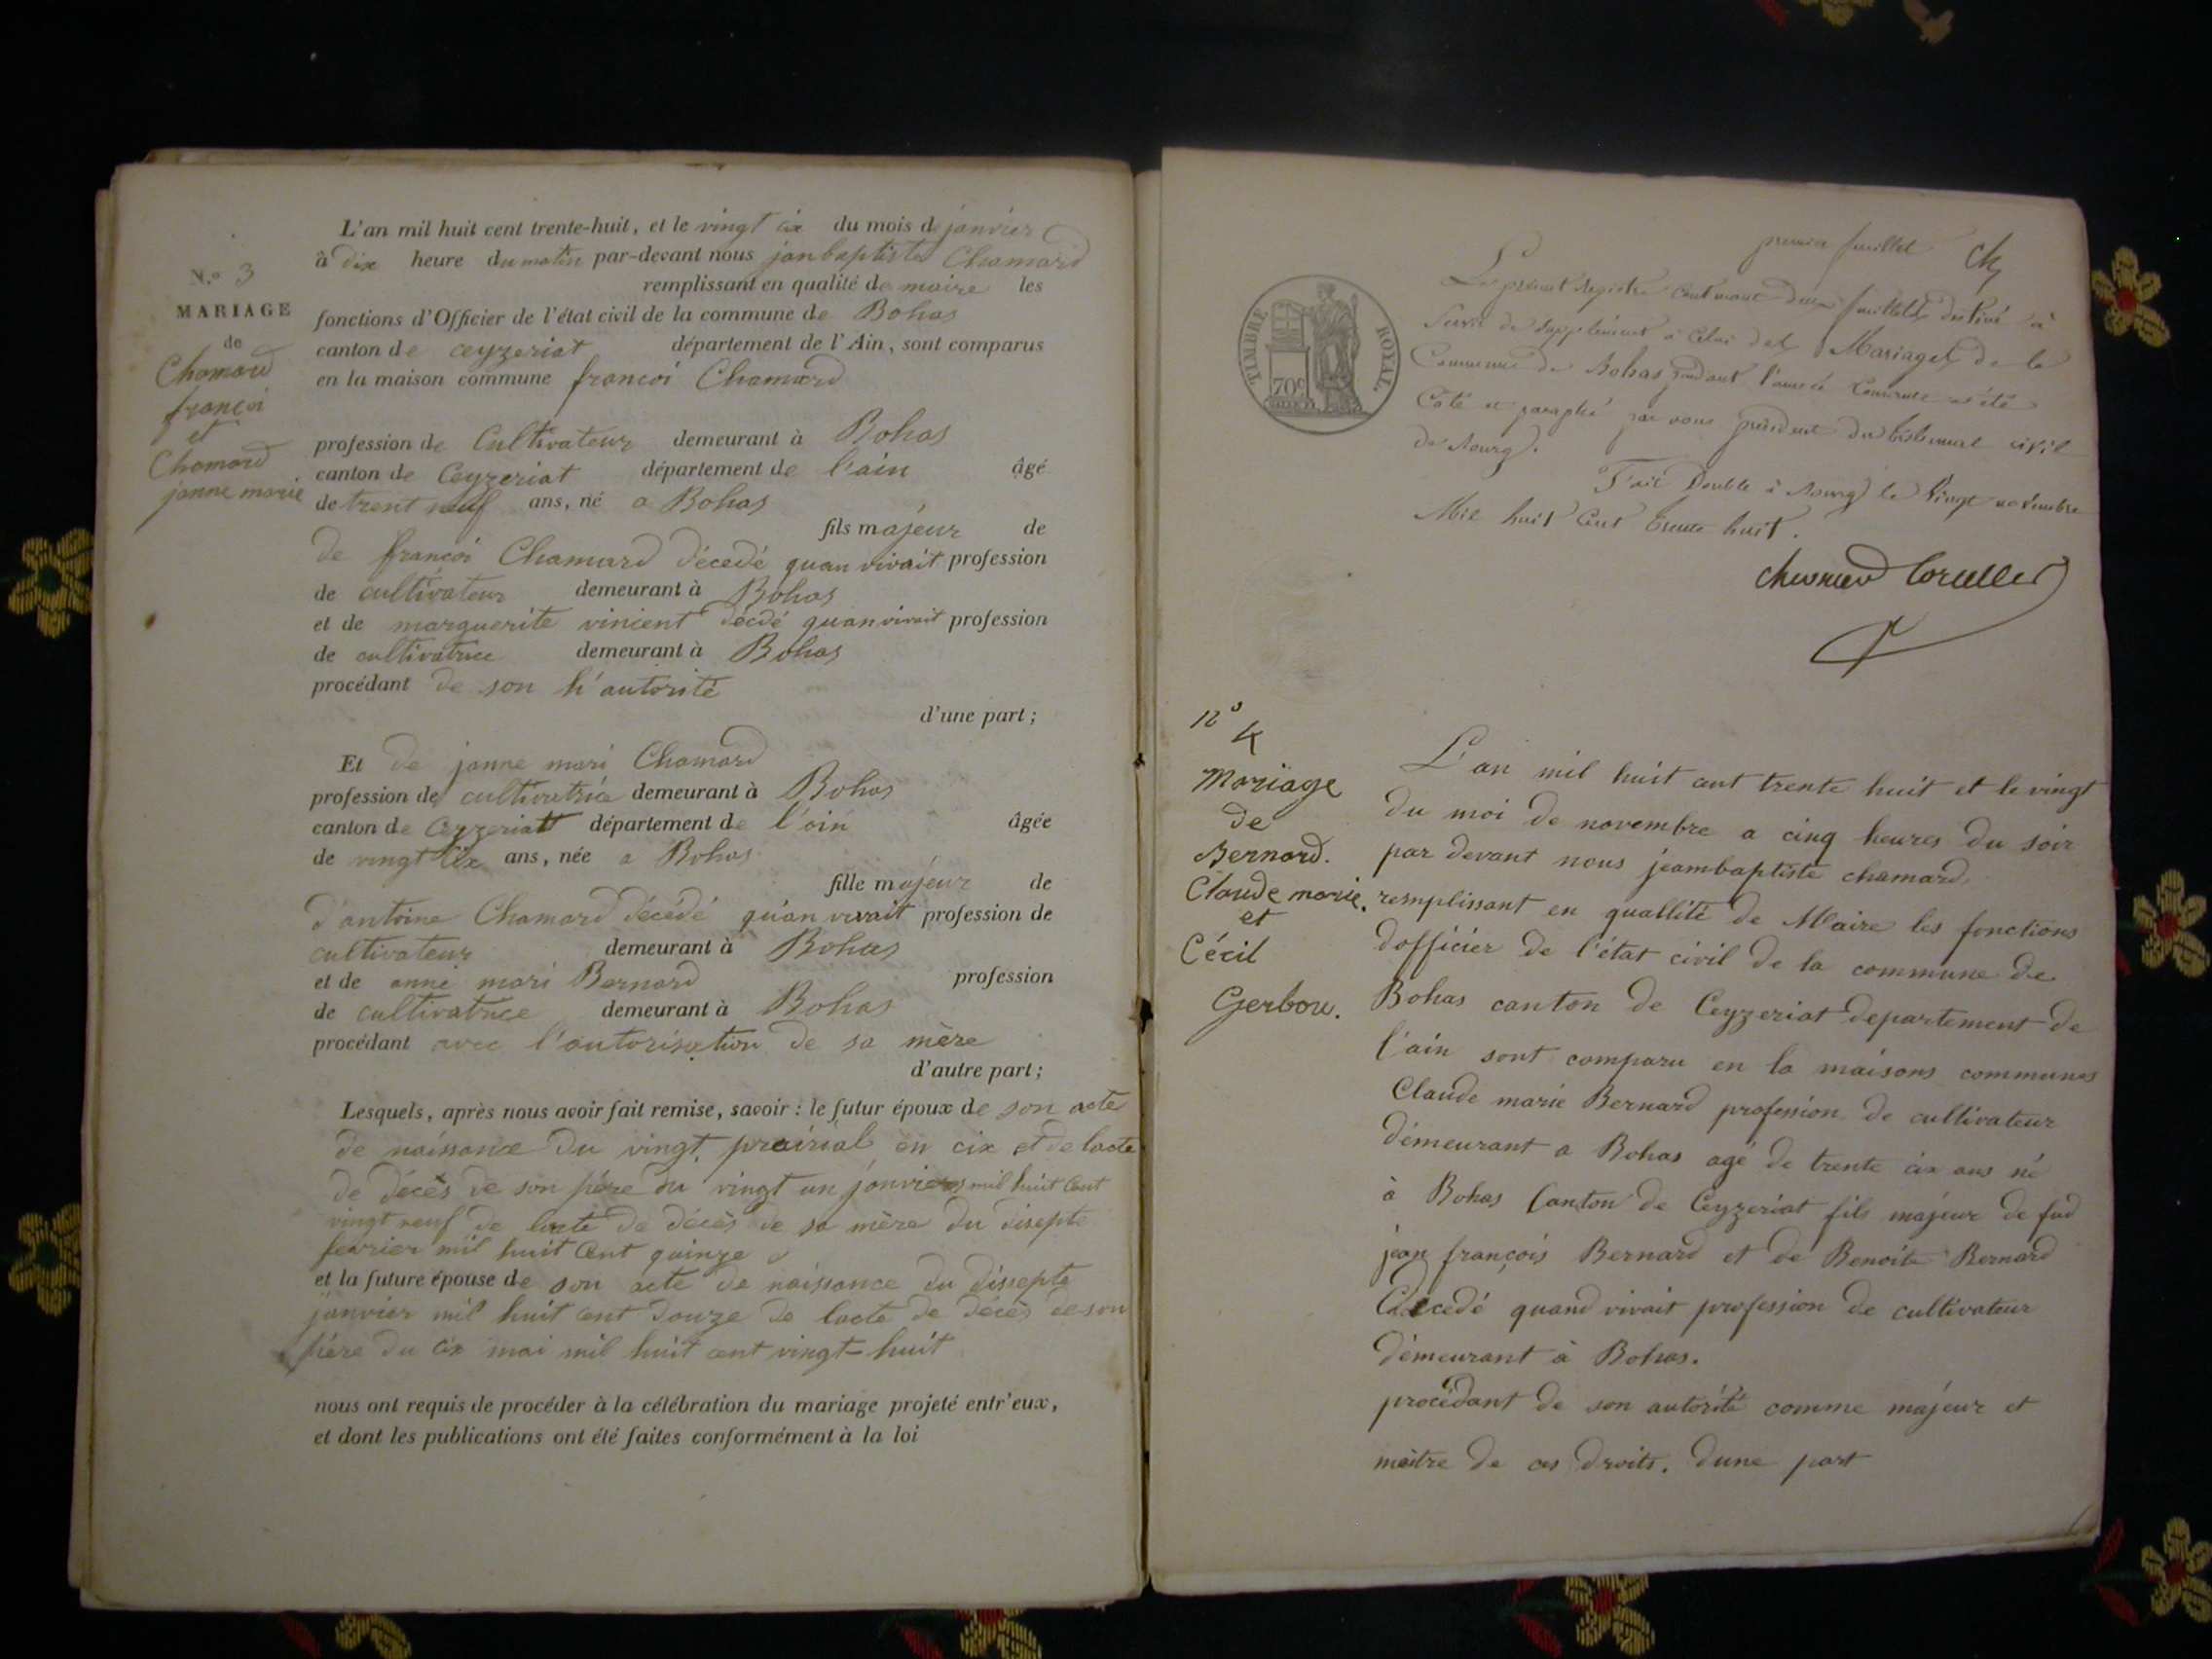 N.o 3
MARIAGE
de
Chamard
françoi
et
Chamard
janne marie
L'an mil huit cent trente-huit, et le vingt cix du mois de janvier
à dix heure du matin par-devant nous janbaptiste Chamard
remplissant en qualité de maire les
fonctions d'Officier de l'état civil de la commune de Bohas
canton de ceyzeriat département de l'Ain, sont comparus
en la maison commune françoi Chamard
profession de Cultivateur demeurant à Bohas
canton de Ceyzeriat département de l'ain âgé
de trent neuf ans, né a Bohas
fils majeur de
de françoi Chamard décedé quan vivait profession
de cultivateur demeurant à Bohas
et de marguerite vincent décdé quan vivait profession
de cultivatrice demeurant à Bohas
procédant de son h'autorité
d'une part ;
Et de janne mari Chamard
profession de cultivatrice demeurant à Bohas
canton de Ceyzeriatt département de l'ain âgée
de vingt cix ans, née a Bohas
fille majeur de
d'antoine Chamard décédé qu'an vivait profession de
cultivateur demeurant à Bohas
et de anne mari Bernard profession
de cultivatrice demeurant à Bohas
procédant avec l'autorisation de sa mère
d'autre part ;
Lesquels, après nous avoir fait remise, savoir : le futur époux de son acte
de naissance du vingt prairial en cix et de lacte
de décès de son père du vingt un janvier mil huit cent
vingt neuf de lacte de décès de sa mère du disepte
fevrier mil huit cent quinze
et la future épouse de son acte de naissance du dissepte
janvier mil huit cent douze de lacte de décès de son
père du cix mai mil huit cent vingt-huit
nous ont requis de procéder à la célébration du mariage projeté entr'eux,
et dont les publications ont été faites conformément à la loi
premier feuillet
TIMBRE ROYAL.
70c
Le présent Registre contenant deux feuillets destiné à
servir de supplément à celui des Mariages de la
Commune de Bohas pendant l'année courante a été
Coté et paraphé par nous président du tribunal civil
de Bourg.
Fait Double à Bourg le vingt novembre
Mil huit Cent trente huit.
no 4
Mariage
de
Bernard.
Claude marie.
et
Cécil
Gerbou.
L'an mil huit cent trente huit et le vingt
du moi de novembre a cinq heures du soir
par devant nous jeambaptiste chamard.
remplissant en quallité de Maire les fonctions
dofficier de l'état civil de la commune de
Bohas canton de Ceyzeriat departement de
l'ain sont comparu en la maisons communes
Claude marie Bernard profession de cultivateur
démeurant a Bohas agé de trente cix ans né
à Bohas Canton de Ceyzeriat fils majeur de fud
jean françois Bernard et de Benoite Bernard
Décedé quand vivait profession de cultivateur
démeurant à Bohas.
procèdant de son autórité comme majeur et
maitre de ces droits. dune part